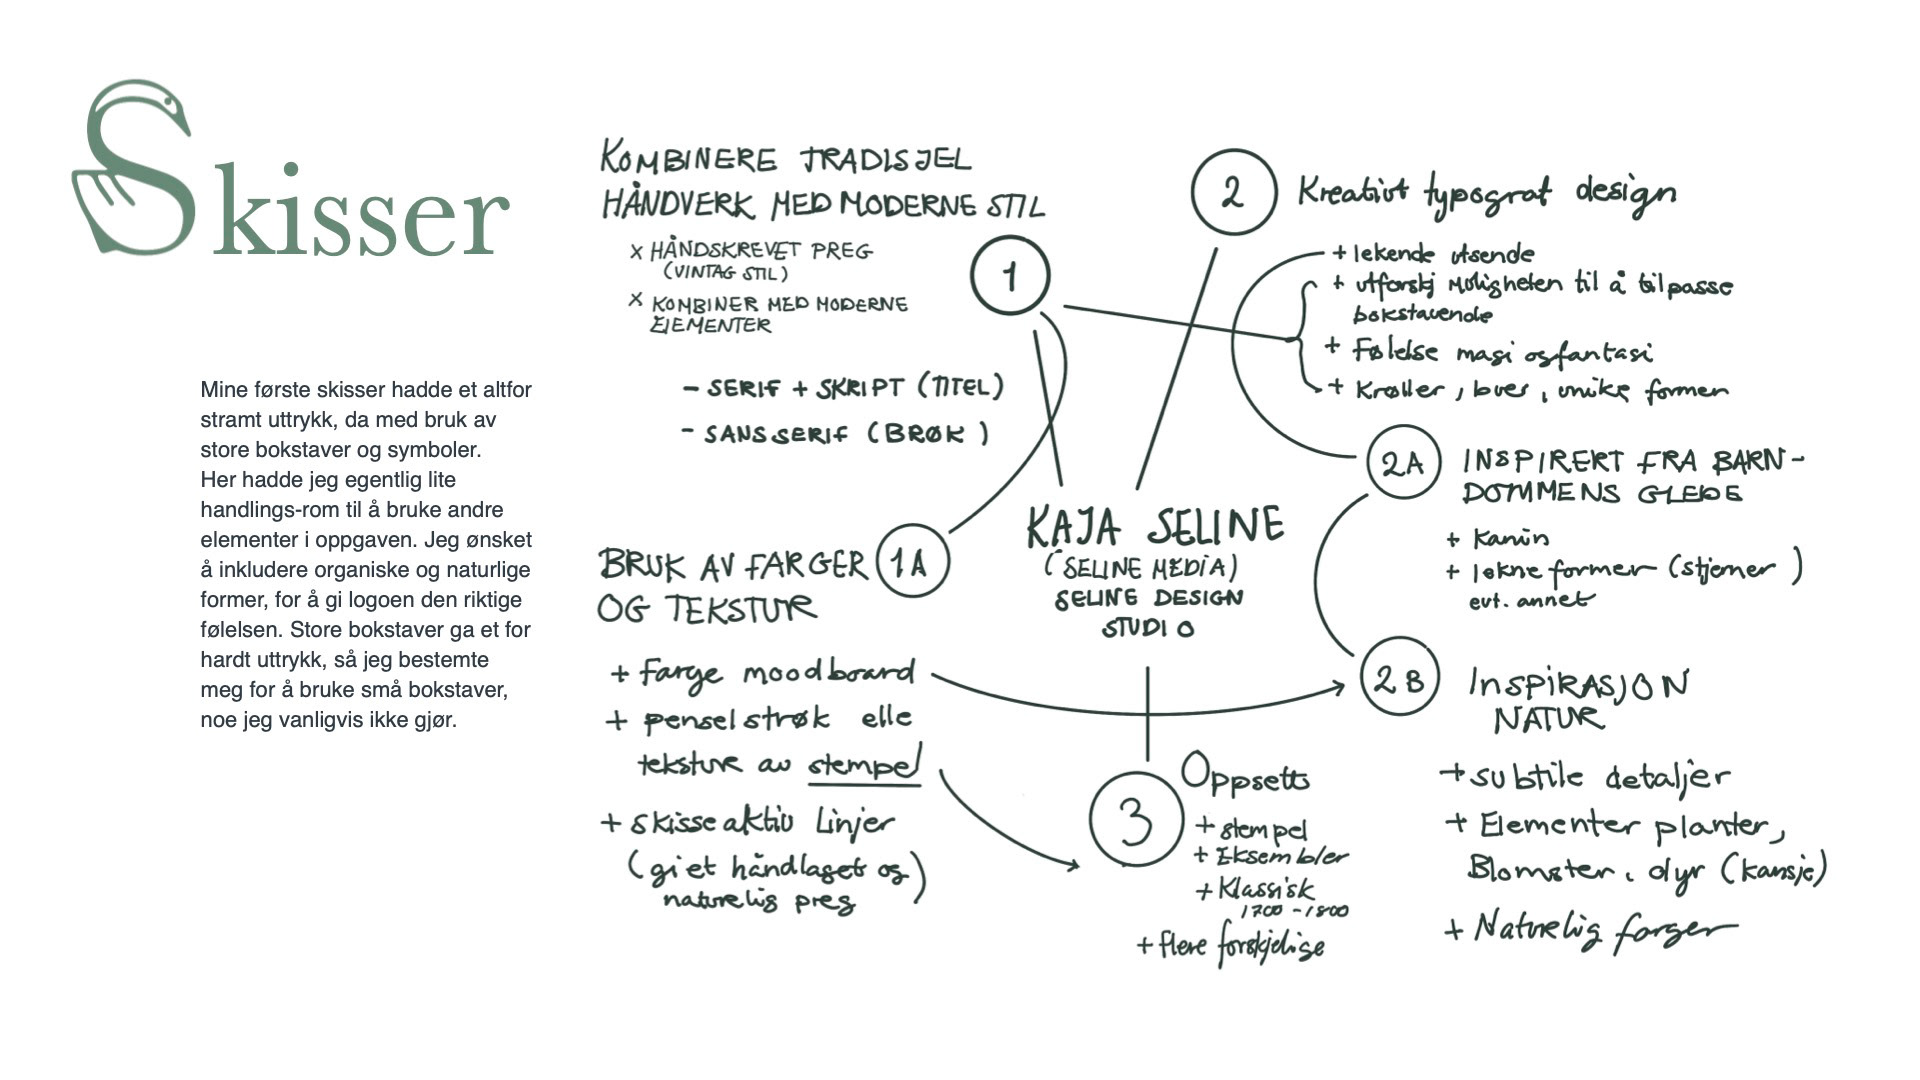 Skisser
Mine første skisser hadde et altfor
stramt uttrykk, da med bruk av
store bokstaver og symboler.
Her hadde jeg egentlig lite
handlings-rom til å bruke andre
elementer i oppgaven. Jeg ønsket
å inkludere organiske og naturlige
former, for å gi logoen den riktige
følelsen. Store bokstaver ga et for
hardt uttrykk, så jeg bestemte
meg for å bruke små bokstaver,
noe jeg vanligvis ikke gjør.
KOMBINERE TRADISJEL
HÅNDVERK MED MODERNE STIL
x HÅNDSKREVET PREG
(VINTAG STIL)
x KOMBINER MED MODERNE
ElEMENTER
1
- SERIF + SKRIPT (TITEL)
- SANSSERIF (BRØK)
BRUK AV FARGER
OG TEKSTUR
1A
+ Farge moodboard
+ penselstrøk elle
teksture av stempel
+ skisseaktiv Linjer
(gi et håndlaget og
naturelig preg)
KAJA SELINE
(SELINE MEDIA)
SELINE DESIGN
STUDIO
2 Kreativt typograf design
+ lekende utsende
+ utforskj moligheten til å tilpasse
bokstavende
+ Følelse magi og fantasi
+ Krøller, buer, unike former
2A INSPIRERT FRA BARN-
DOMMENS GLEDE
+ Kanin
+ lekne former (stjerner)
evt. annet
2B INSPIRASJON
NATUR
+ subtile detaljer
+ Elementer planter,
Blomster, dyr (kansje)
+ Naturelig farger
3 Oppsetts
+ stempel
+ Eksembler
+ Klassisk
1700 - 1800
+ flere forskjelige